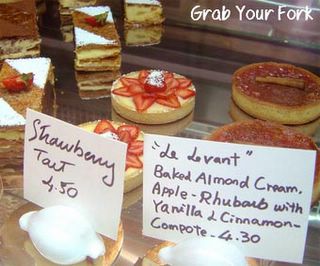 Grab Your Fork
Strawberry
Tart
4.50
"Le Levant"
Baked Almond Cream,
Apple-Rhubarb with
Vanilla & Cinnamon-
Compote-4.30